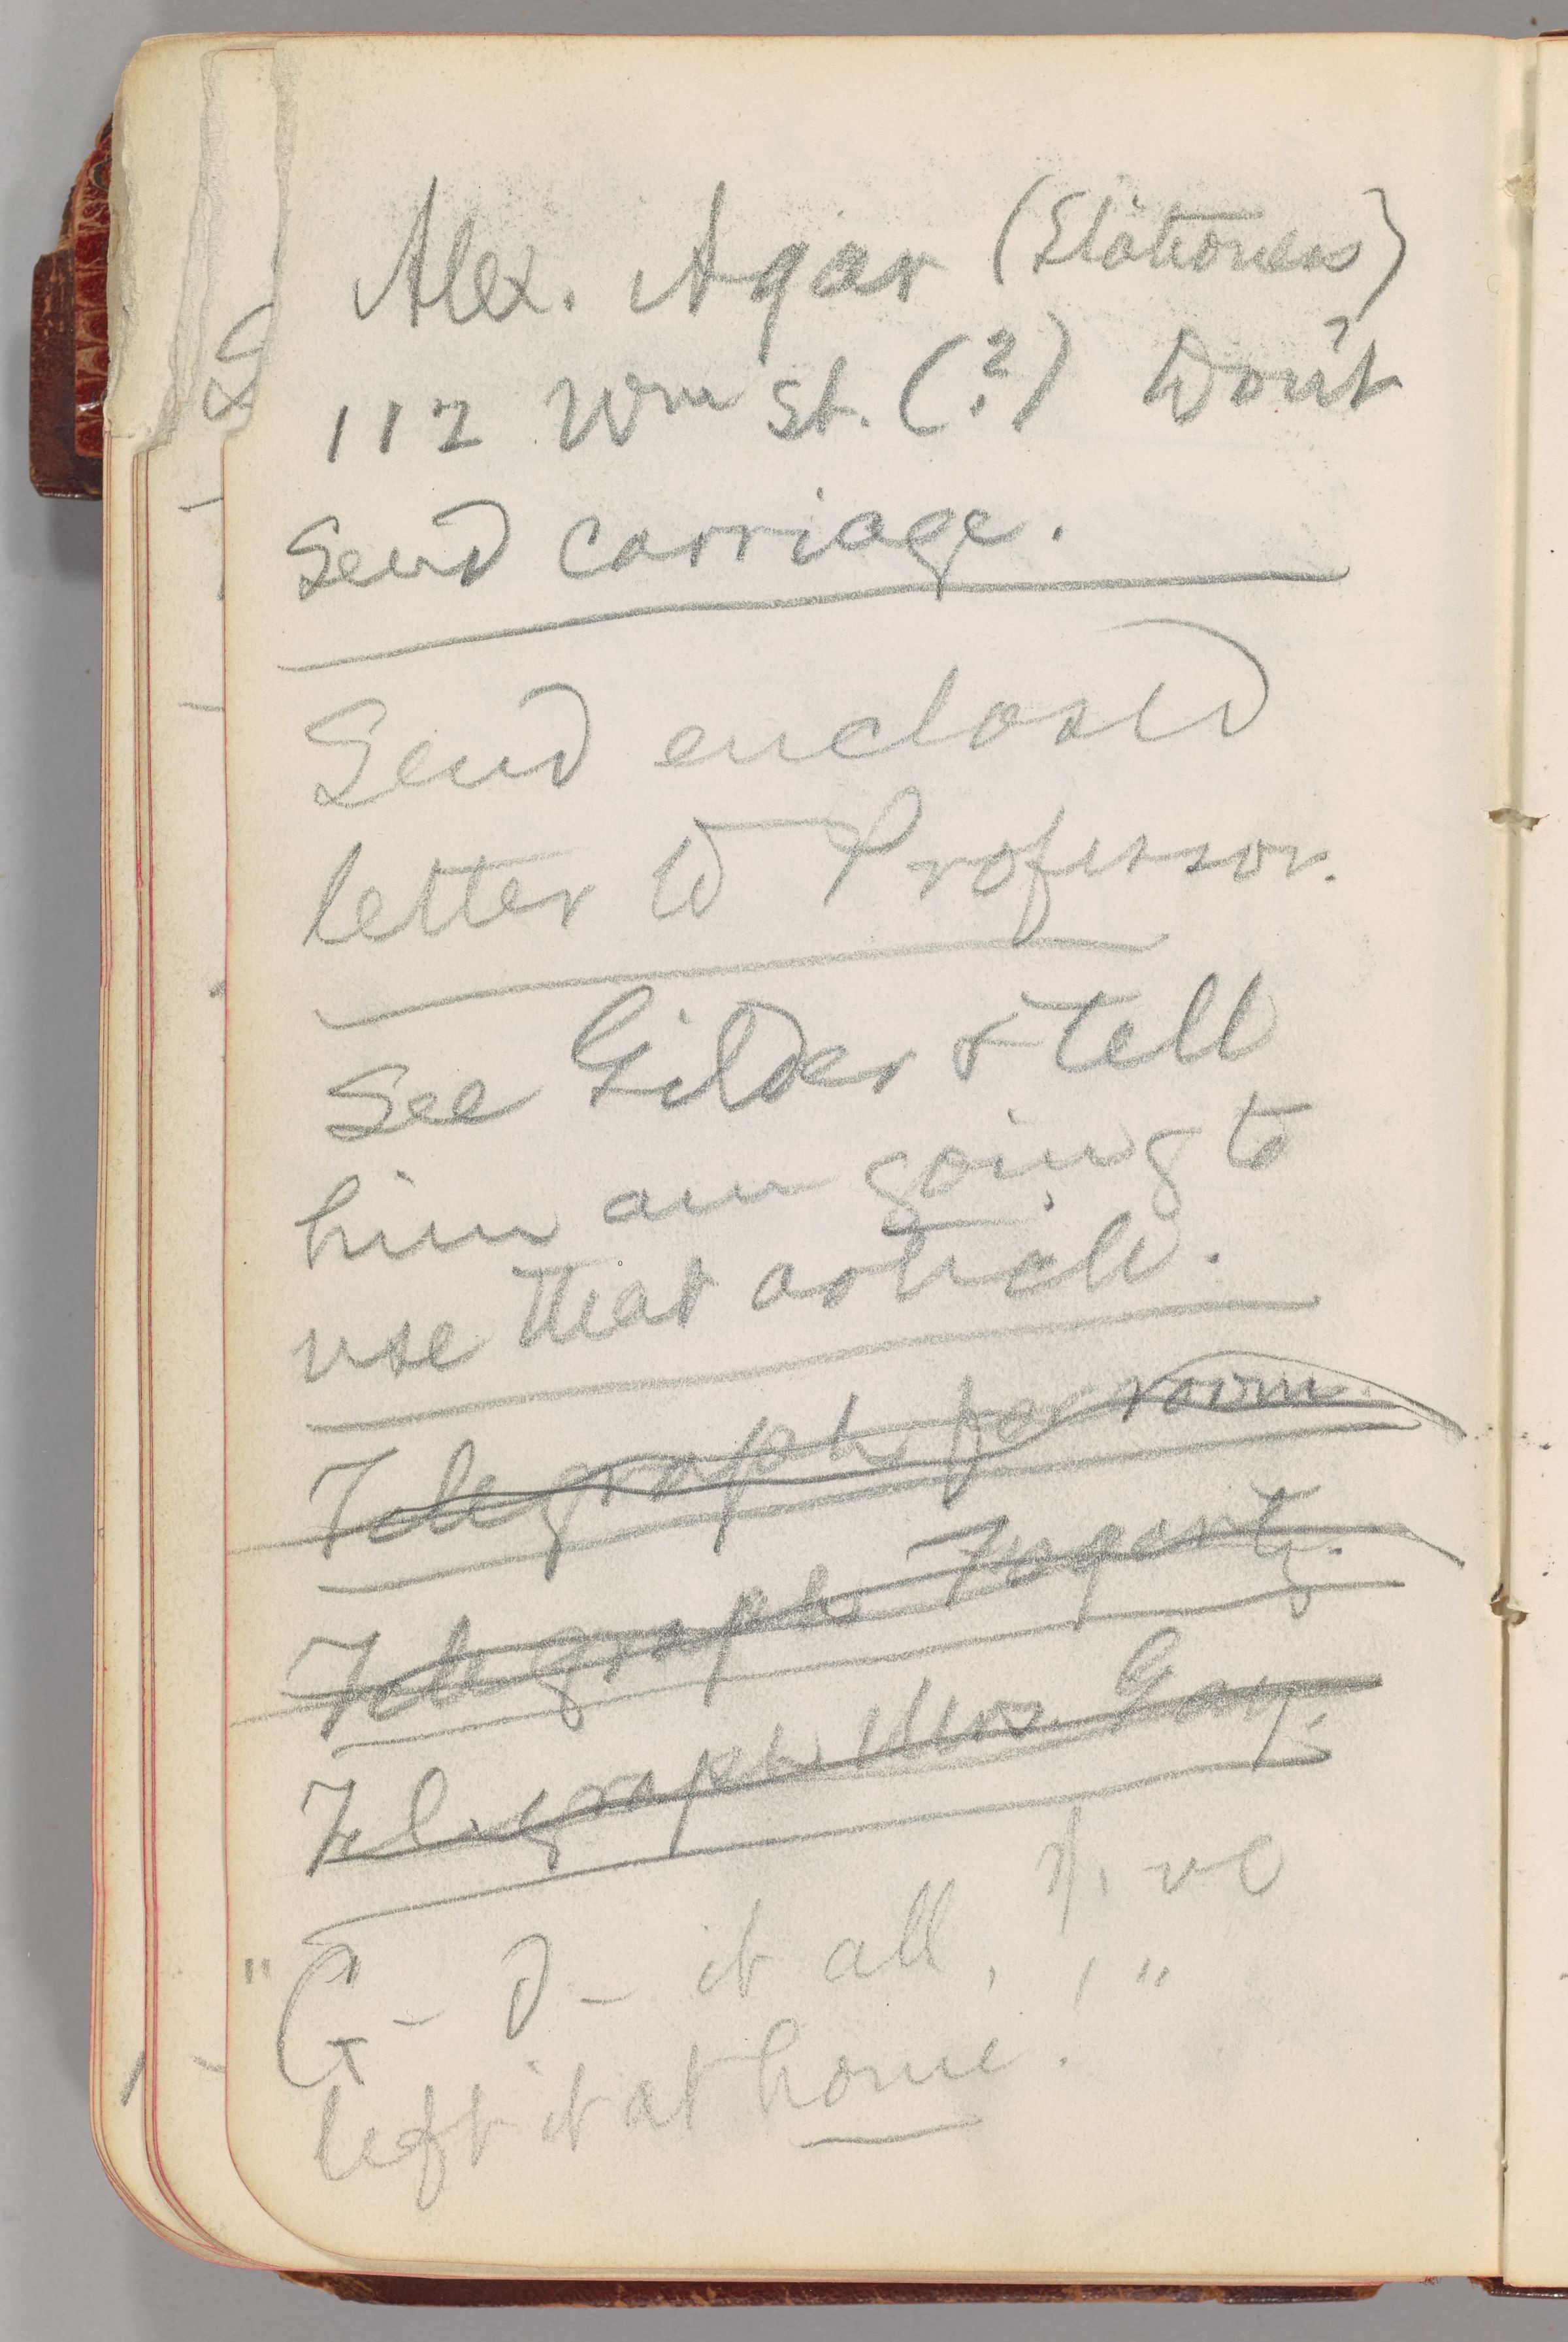 Alex. Agar (Stationers)
112 Wm St. (?) Don't
send carriage.
Send enclosed
letter to Professor.
See Gilder & tell
him am going to
use that article.
Telegraph for room.
Telegraph Fogarty.
Telegraph Mrs. Gay.
"G— d— it all, I've
left it at home!"